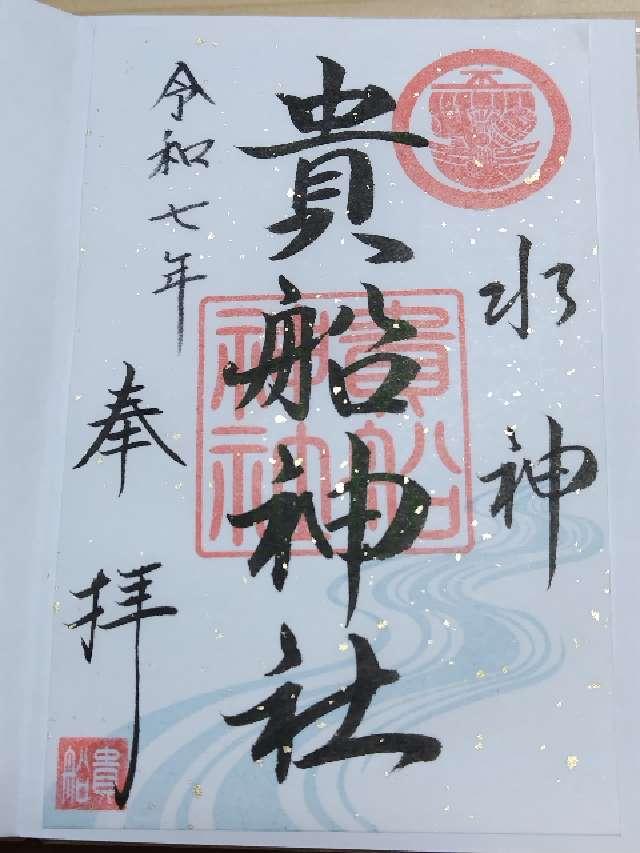 水神
貴船神社
貴船神社
令和七年
奉拝
貴船